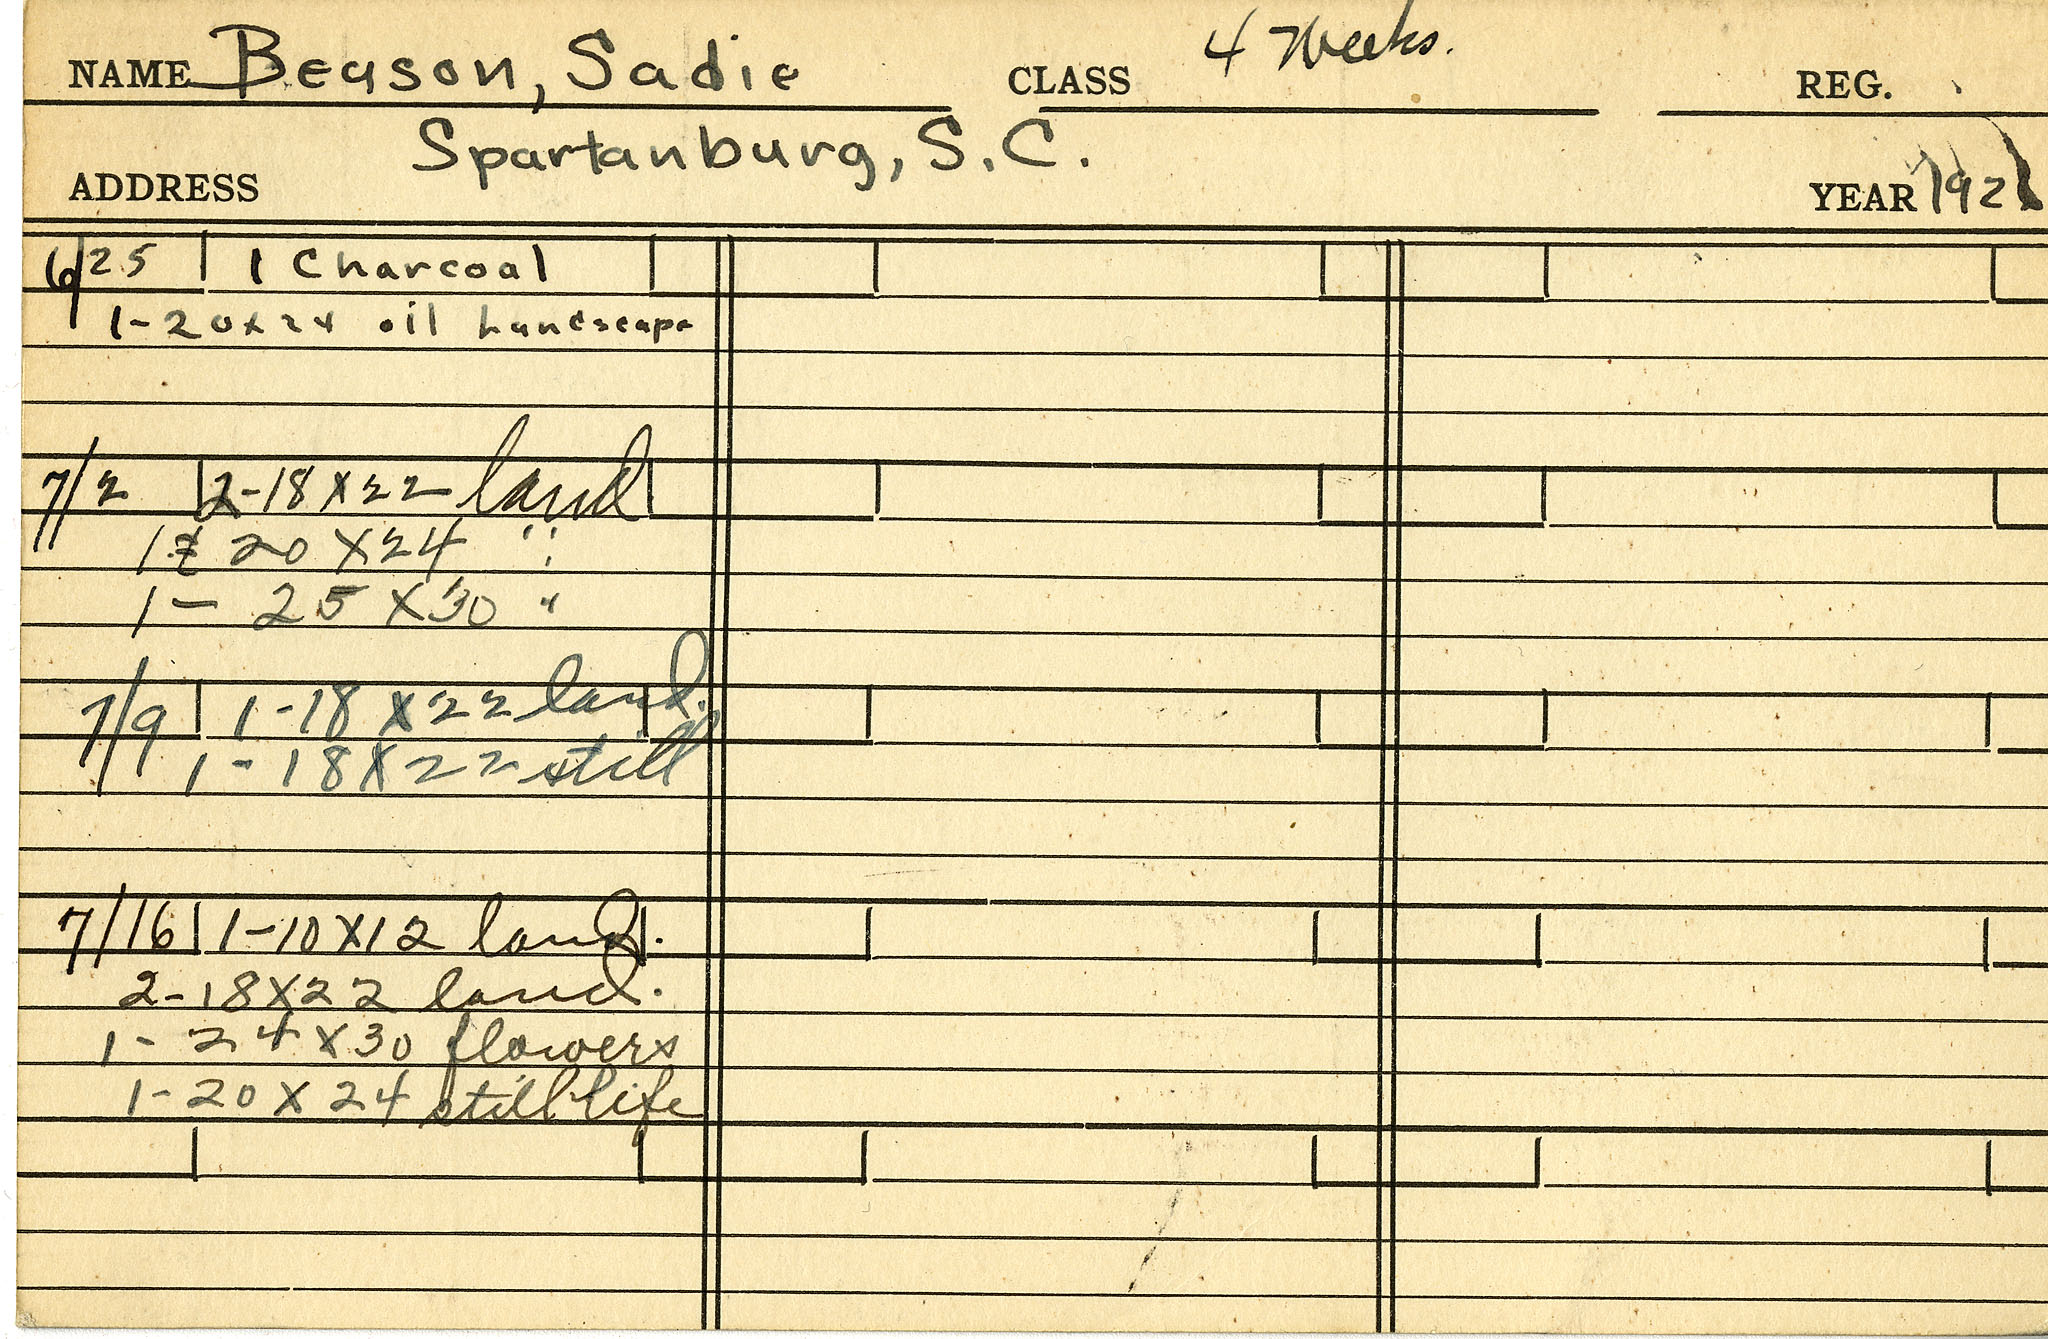 NAME Beason, Sadie CLASS 4 Weeks. REG.
ADDRESS Spartanburg, S.C. YEAR 1921
6/25 1 Charcoal
1-20x24 oil Landscape
7/2 2-18x22 land
1 20x24 "
1- 25x30 "
7/9 1-18x22 land.
1-18x22 still
7/16 1-10x12 land.
2-18x22 land.
1-24x30 flowers
1-20x24 still life